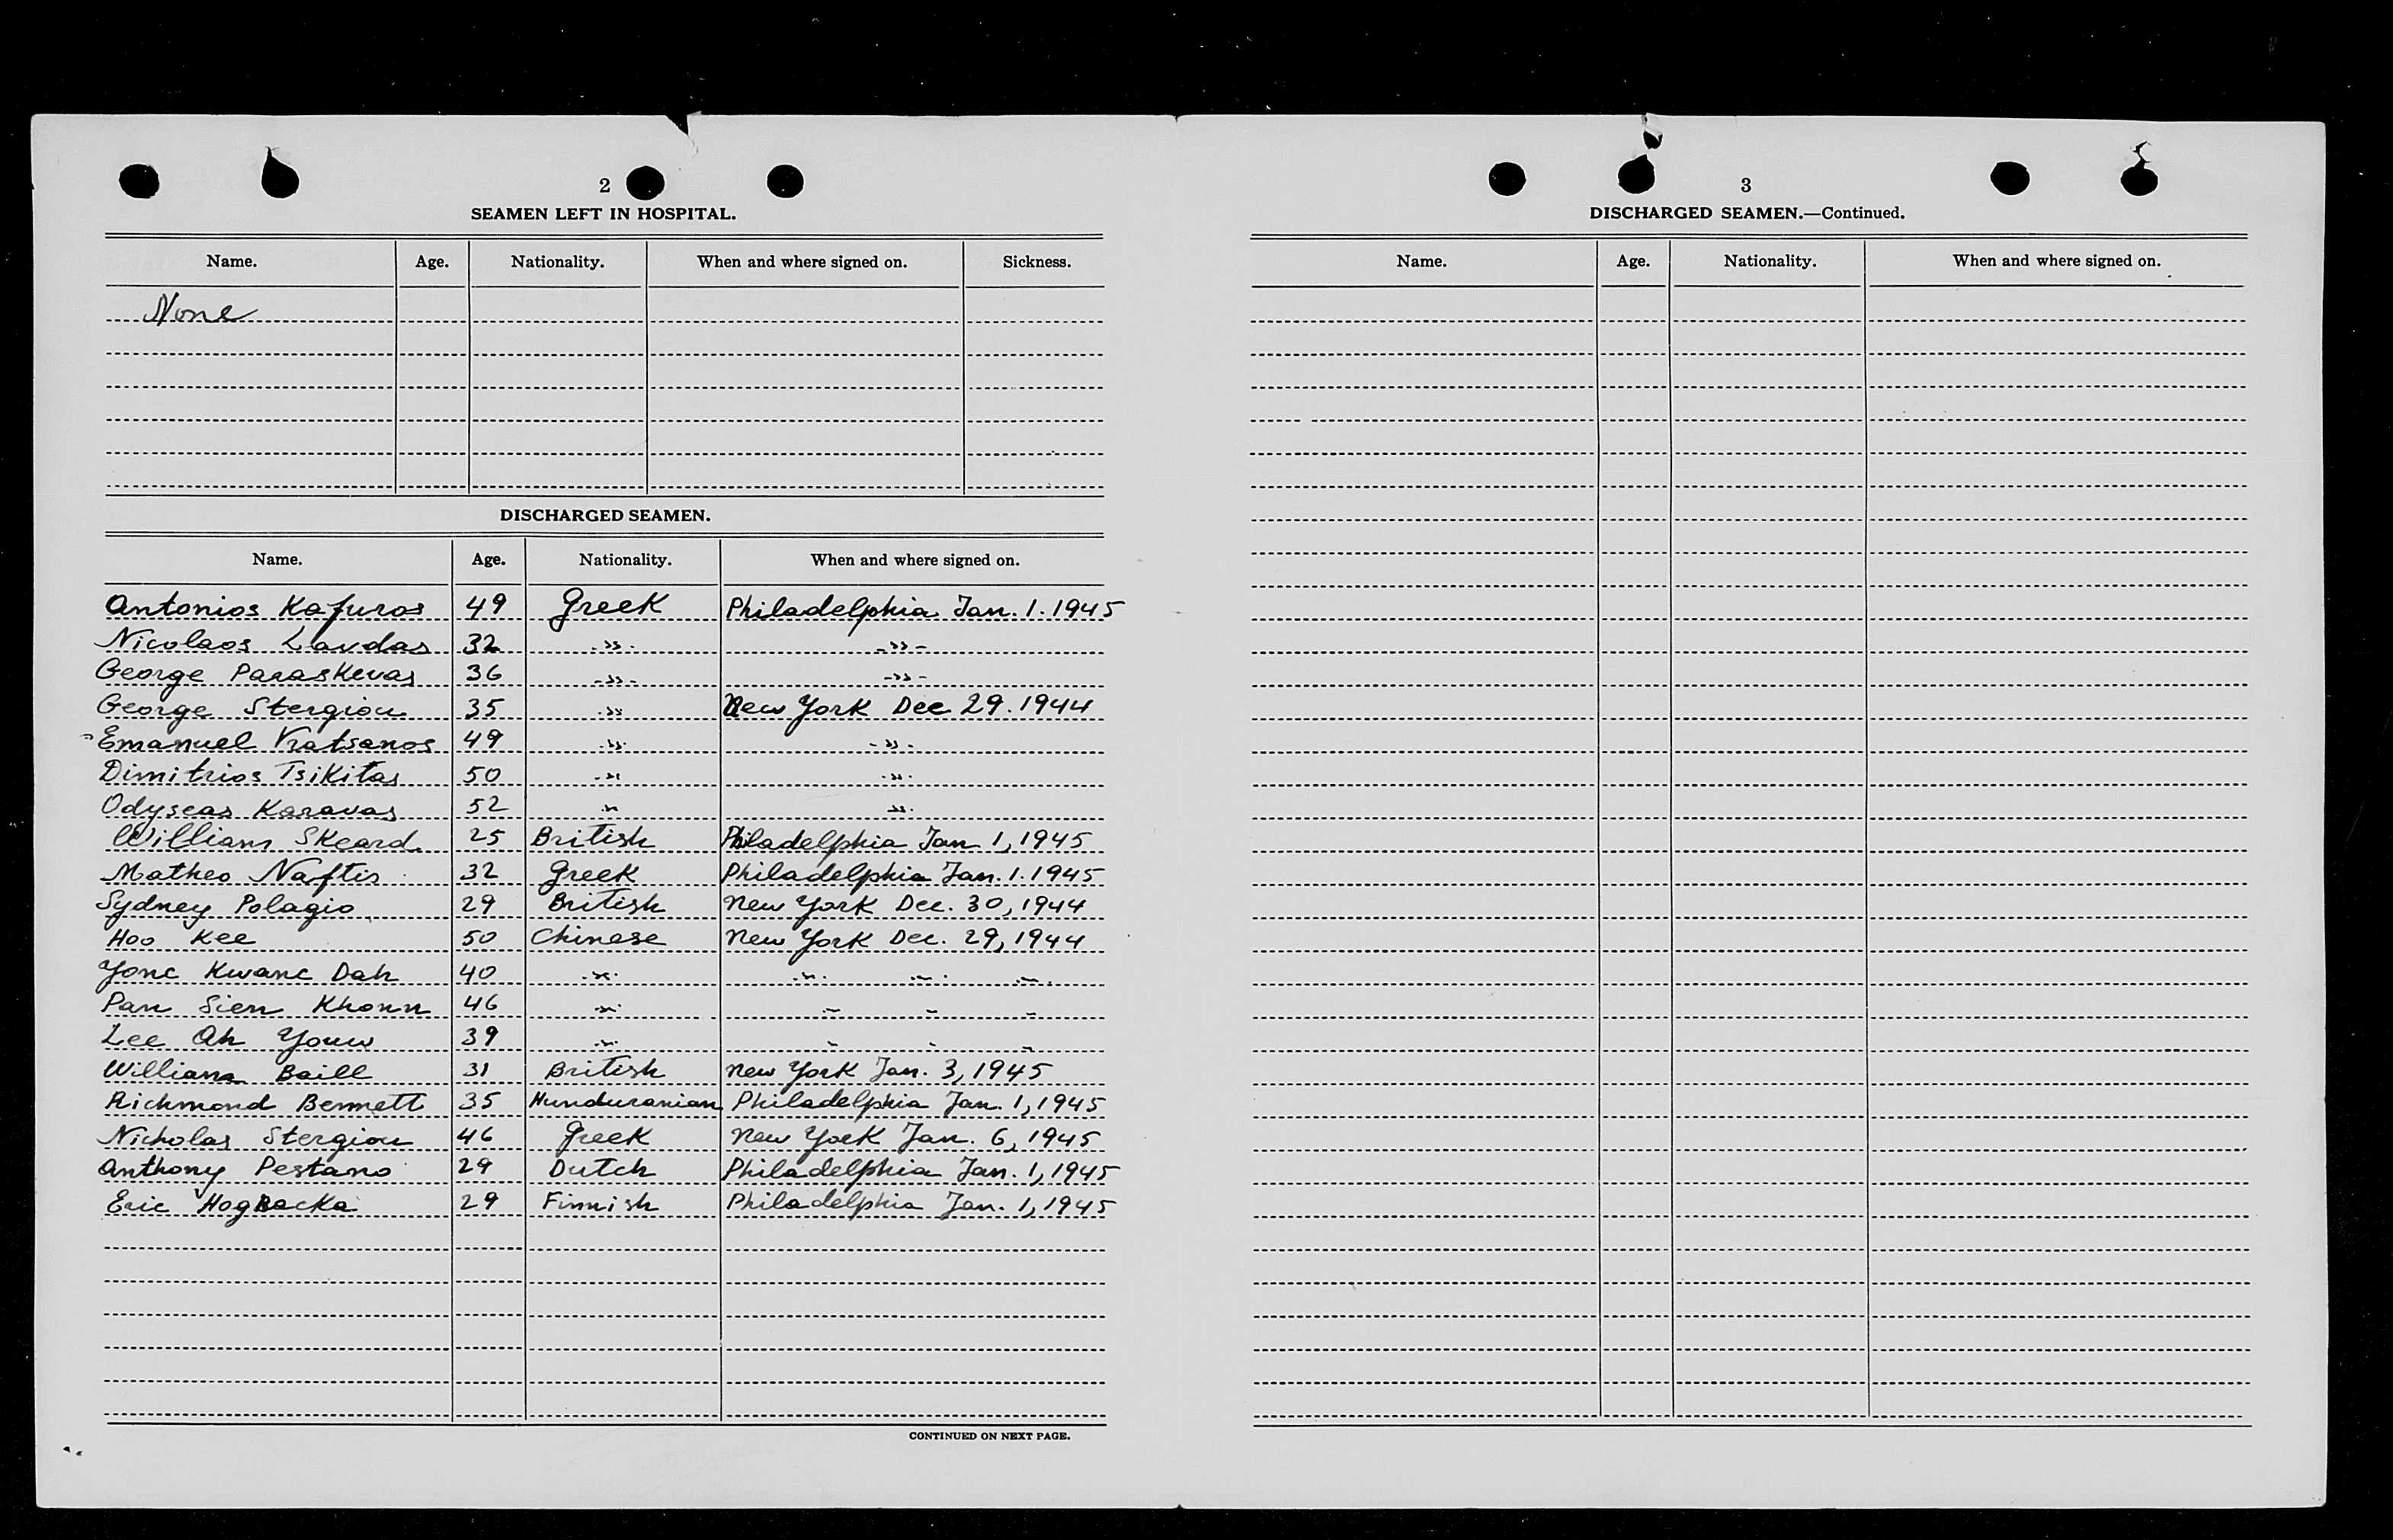 2
SEAMEN LEFT IN HOSPITAL.
Name. Age. Nationality. When and where signed on. Sickness.
None
DISCHARGED SEAMEN.
Name. Age. Nationality. When and where signed on.
Antonios Kafuros 49 Greek Philadelphia Jan. 1. 1945
Nicolaos Lavdas 32 -»- -»-
George Paraskevas 36 -»- -»-
George Stergiou 35 -»- New York Dec 29. 1944
Emanuel Kratsanos 49 -»- -»-
Dimitrios Tsikitas 50 -»- -»-
Odyseas Karavas 52 -»- -»-
William Skeard 25 British Philadelphia Jan 1, 1945
Matheo Naftis 32 Greek Philadelphia Jan. 1. 1945
Sydney Polagio 29 British New York Dec. 30, 1944
Hoo Kee 50 Chinese New York Dec. 29, 1944
Yonc Kwanc Dah 40 -»- -»- -»- -»-
Pan Sien Khonn 46 -»- -»- -»- -»-
Lee Ah Youw 39 -»- -»- -»- -»-
William Baill 31 British New York Jan. 3, 1945
Richmond Bennett 35 Hunduranian Philadelphia Jan. 1, 1945
Nicholas Stergiou 46 Greek New York Jan. 6, 1945
Anthony Pestano 29 Dutch Philadelphia Jan. 1, 1945
Eric Hogbacka 29 Finnish Philadelphia Jan. 1, 1945
CONTINUED ON NEXT PAGE.
3
DISCHARGED SEAMEN.—Continued.
Name. Age. Nationality. When and where signed on.